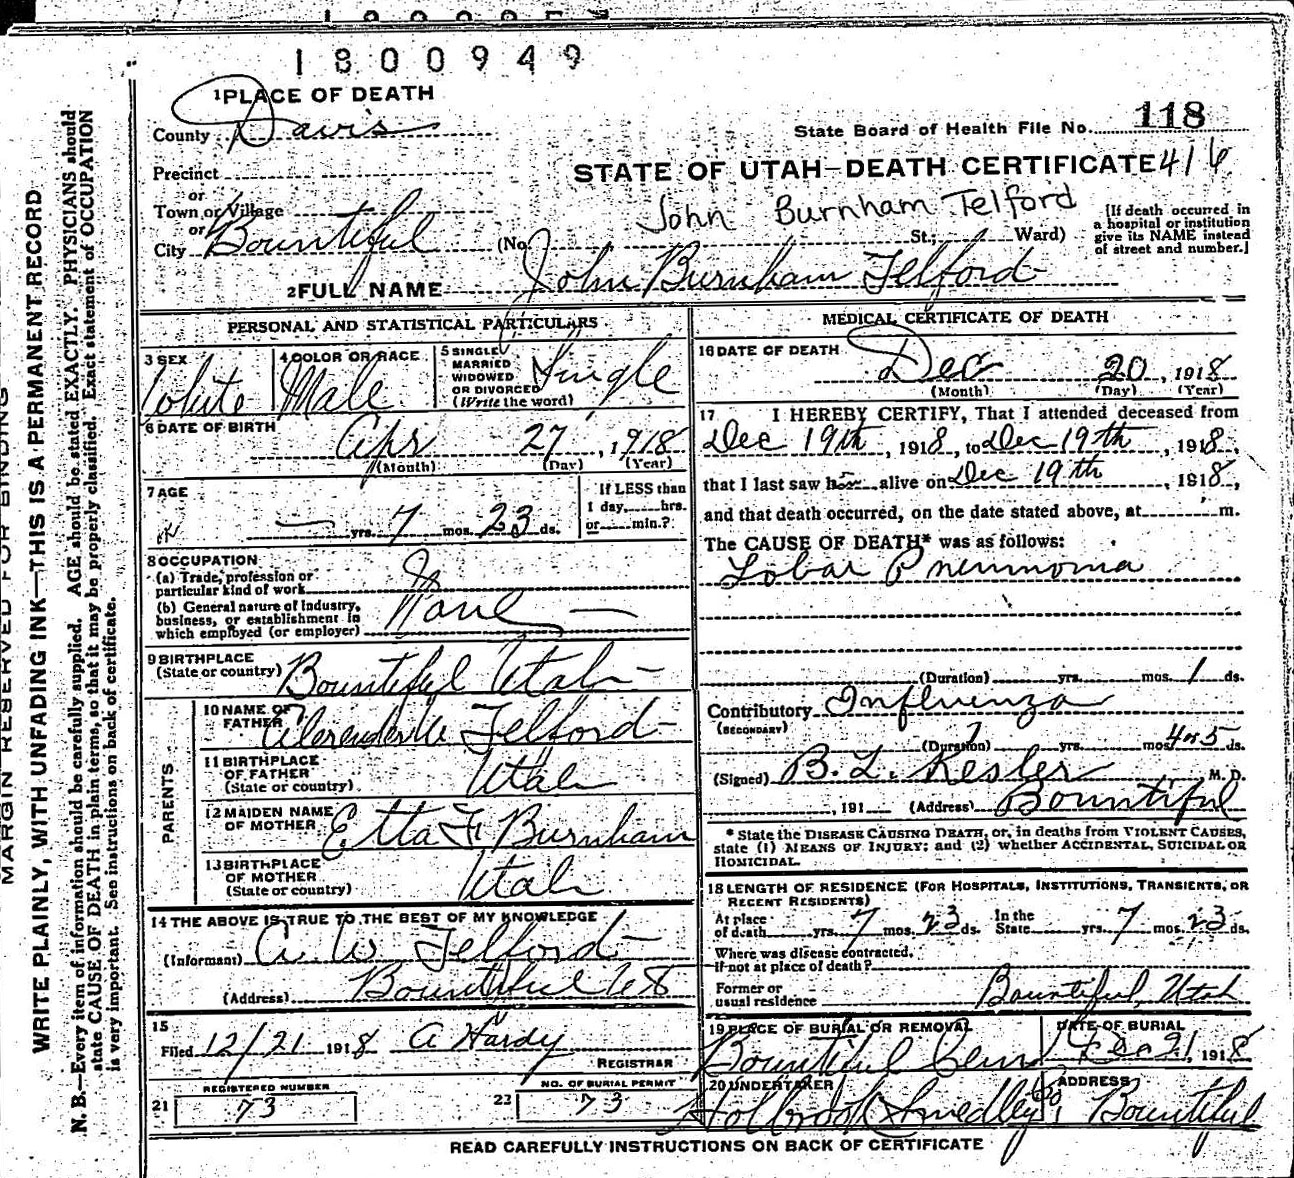 1800949
1 PLACE OF DEATH
County Davis
State Board of Health File No. 118
Precinct
STATE OF UTAH—DEATH CERTIFICATE 416
or
Town or Village
John Burnham Telford
or
City Bountiful (No. St.; Ward)
[If death occurred in
a hospital or institution
give its NAME instead
of street and number.]
2 FULL NAME John Burnham Telford
PERSONAL AND STATISTICAL PARTICULARS
3 SEX White
4 COLOR OR RACE Male
5 SINGLE
MARRIED
WIDOWED
OR DIVORCED
(Write the word) Single
6 DATE OF BIRTH
Apr 27, 1918
(Month) (Day) (Year)
7 AGE
— yrs. 7 mos. 23 ds.
If LESS than
1 day, hrs.
or min.?
8 OCCUPATION
(a) Trade, profession or
particular kind of work
(b) General nature of Industry,
business, or establishment in
which employed (or employer) None —
9 BIRTHPLACE
(State or country) Bountiful Utah —
PARENTS
10 NAME OF
FATHER Telford
11 BIRTHPLACE
OF FATHER
(State or country) Utah
12 MAIDEN NAME
OF MOTHER Etta F Burnham
13 BIRTHPLACE
OF MOTHER
(State or country) Utah
14 THE ABOVE IS TRUE TO THE BEST OF MY KNOWLEDGE
(Informant) A W Telford
(Address) Bountiful Ut
15
Filed 12/21 1918 A Hardy
REGISTRAR
REGISTERED NUMBER
21 73
NO. OF BURIAL PERMIT
22 73
MEDICAL CERTIFICATE OF DEATH
16 DATE OF DEATH
Dec 20, 1918
(Month) (Day) (Year)
17 I HEREBY CERTIFY, That I attended deceased from
Dec 19th, 1918, to Dec 19th, 1918,
that I last saw him alive on Dec 19th, 1918,
and that death occurred, on the date stated above, at m.
The CAUSE OF DEATH* was as follows:
Lobar Pneumonia
(Duration) yrs. mos. 1 ds.
Contributory Influenza
(SECONDARY)
(Duration) yrs. mos. 4 or 5 ds.
(Signed) B. L. Kesler M. D.
, 191 (Address) Bountiful
* State the DISEASE CAUSING DEATH, or, in deaths from VIOLENT CAUSES,
state (1) MEANS OF INJURY; and (2) whether ACCIDENTAL, SUICIDAL OR
HOMICIDAL.
18 LENGTH OF RESIDENCE (FOR HOSPITALS, INSTITUTIONS, TRANSIENTS, OR
RECENT RESIDENTS)
At place
of death yrs. 7 mos. 23 ds.
In the
State yrs. 7 mos. 23 ds.
Where was disease contracted,
if not at place of death?
Former or
usual residence Bountiful, Utah
19 PLACE OF BURIAL OR REMOVAL
Bountiful Cem
DATE OF BURIAL
Dec 21, 1918
20 UNDERTAKER
Holbrook Smedley
ADDRESS
Bountiful
READ CAREFULLY INSTRUCTIONS ON BACK OF CERTIFICATE
MARGIN RESERVED FOR BINDING
WRITE PLAINLY, WITH UNFADING INK—THIS IS A PERMANENT RECORD
N. B.—Every item of information should be carefully supplied. AGE should be stated EXACTLY. PHYSICIANS should
state CAUSE OF DEATH in plain terms, so that it may be properly classified. Exact statement of OCCUPATION
is very important. See instructions on back of certificate.